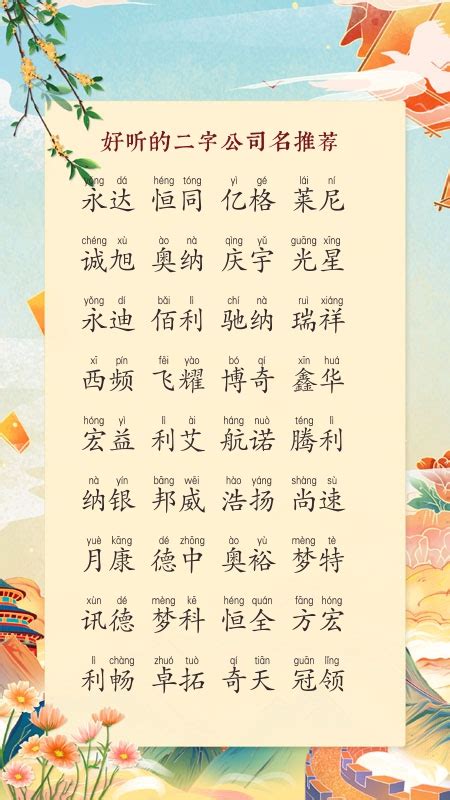 好听的二字公司名推荐
yǒng dá héng tóng yì gé lái ní
永达 恒同 亿格 莱尼
chéng xù ào nà qìng yǔ guāng xīng
诚旭 奥纳 庆宇 光星
yǒng dí bǎi lì chí nà ruì xiáng
永迪 佰利 驰纳 瑞祥
xī pín fēi yào bó qí xīn huá
西频 飞耀 博奇 鑫华
hóng yì lì ài háng nuò téng lì
宏益 利艾 航诺 腾利
nà yín bāng wēi hào yáng shàng sù
纳银 邦威 浩扬 尚速
yuè kāng dé zhōng ào yù mèng tè
月康 德中 奥裕 梦特
xùn dé mèng kē héng quán fāng hóng
讯德 梦科 恒全 方宏
lì chàng zhuó tuò qí tiān guān lǐng
利畅 卓拓 奇天 冠领